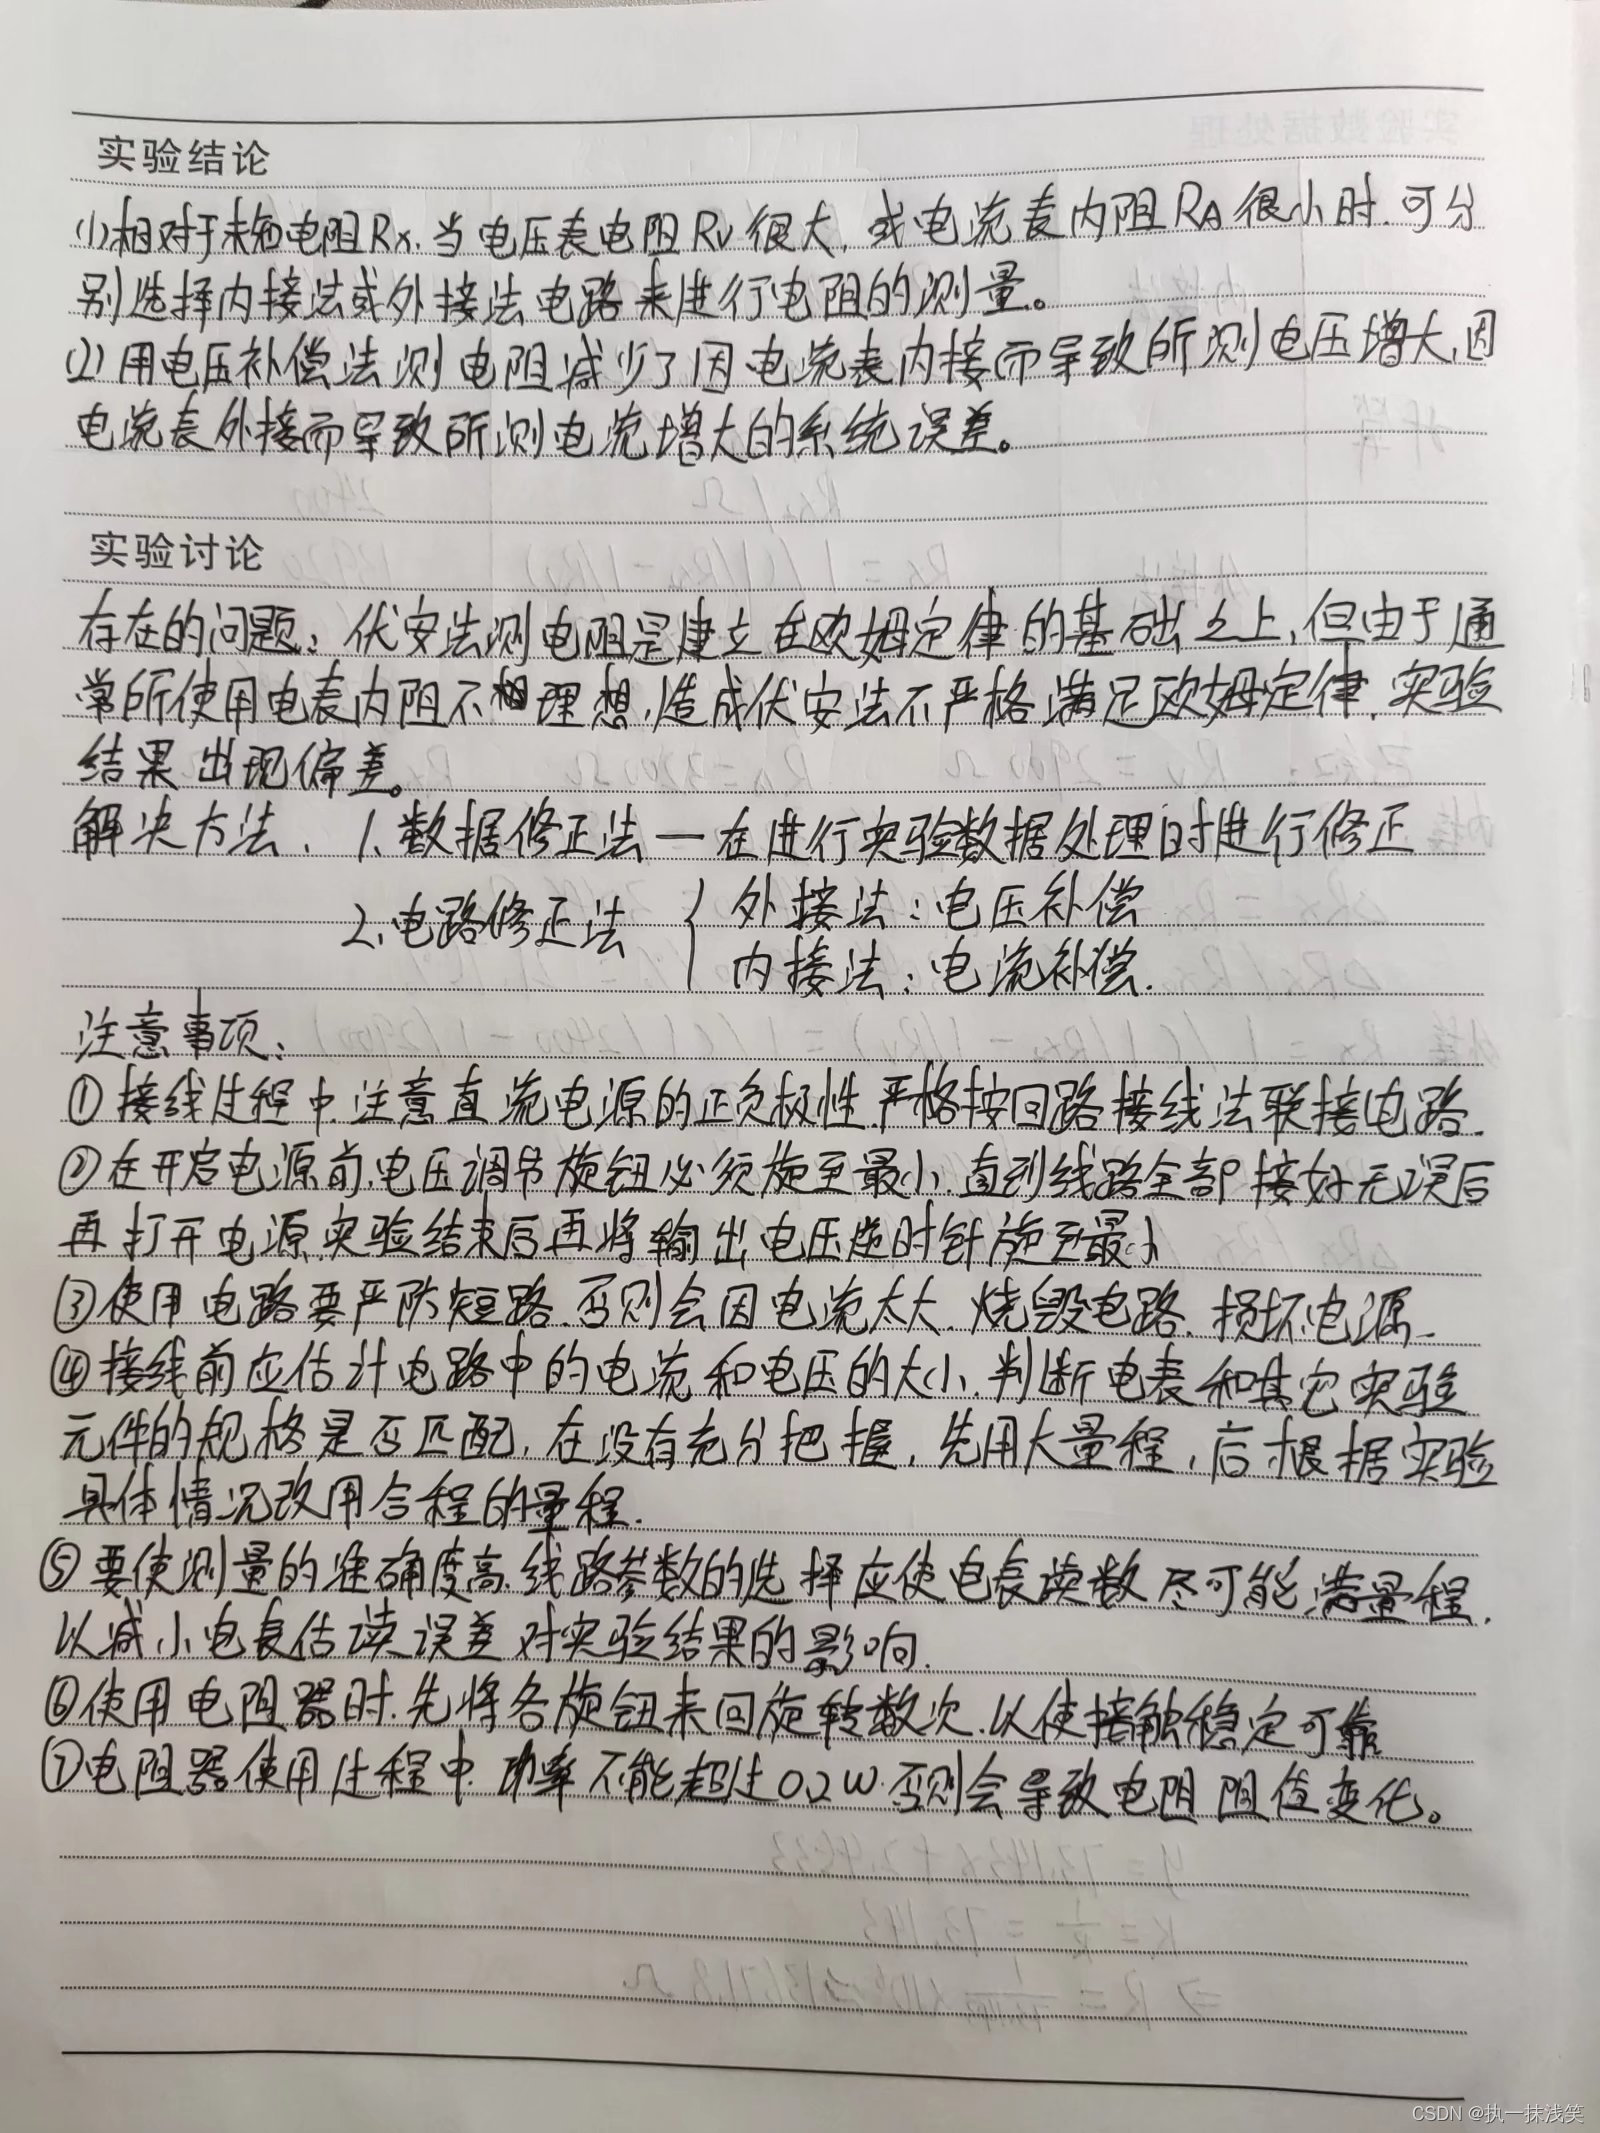 实验结论
(1)相对于未知电阻Rx.当电压表电阻RV很大,或电流表内阻RA很小时.可分
别选择内接法或外接法电路来进行电阻的测量。
(2)用电压补偿法测电阻减少了因电流表内接而导致所测电压增大,因
电流表外接而导致所测电流增大的系统误差。
实验讨论
存在的问题:伏安法测电阻是建立在欧姆定律的基础之上,但由于通
常所使用电表内阻不理想,造成伏安法不严格满足欧姆定律,实验
结果出现偏差。
解决方法、1.数据修正法—在进行实验数据处理时进行修正
2.电路修正法{外接法:电压补偿
内接法:电流补偿.
注意事项:
①接线过程中.注意直流电源的正负极性.严格按回路接线法联接电路.
②在开启电源前,电压调节旋钮必须旋至最小.直到线路全部接好无误后
再打开电源.实验结束后再将输出电压逆时针旋至最小
③使用电路要严防短路.否则会因电流太大.烧毁电路.损坏电源.
④接线前应估计电路中的电流和电压的大小.判断电表和其它实验
元件的规格是否匹配,在没有充分把握,先用大量程,后根据实验
具体情况改用合程的量程.
⑤要使测量的准确度高.线路参数的选择应使电表读数尽可能满量程,
以减小电表估读误差对实验结果的影响.
⑥使用电阻器时.先将各旋钮来回旋转数次.以使接触稳定可靠
⑦电阻器使用过程中.功率不能超过0.2W.否则会导致电阻阻值变化。
CSDN @执一抹浅笑